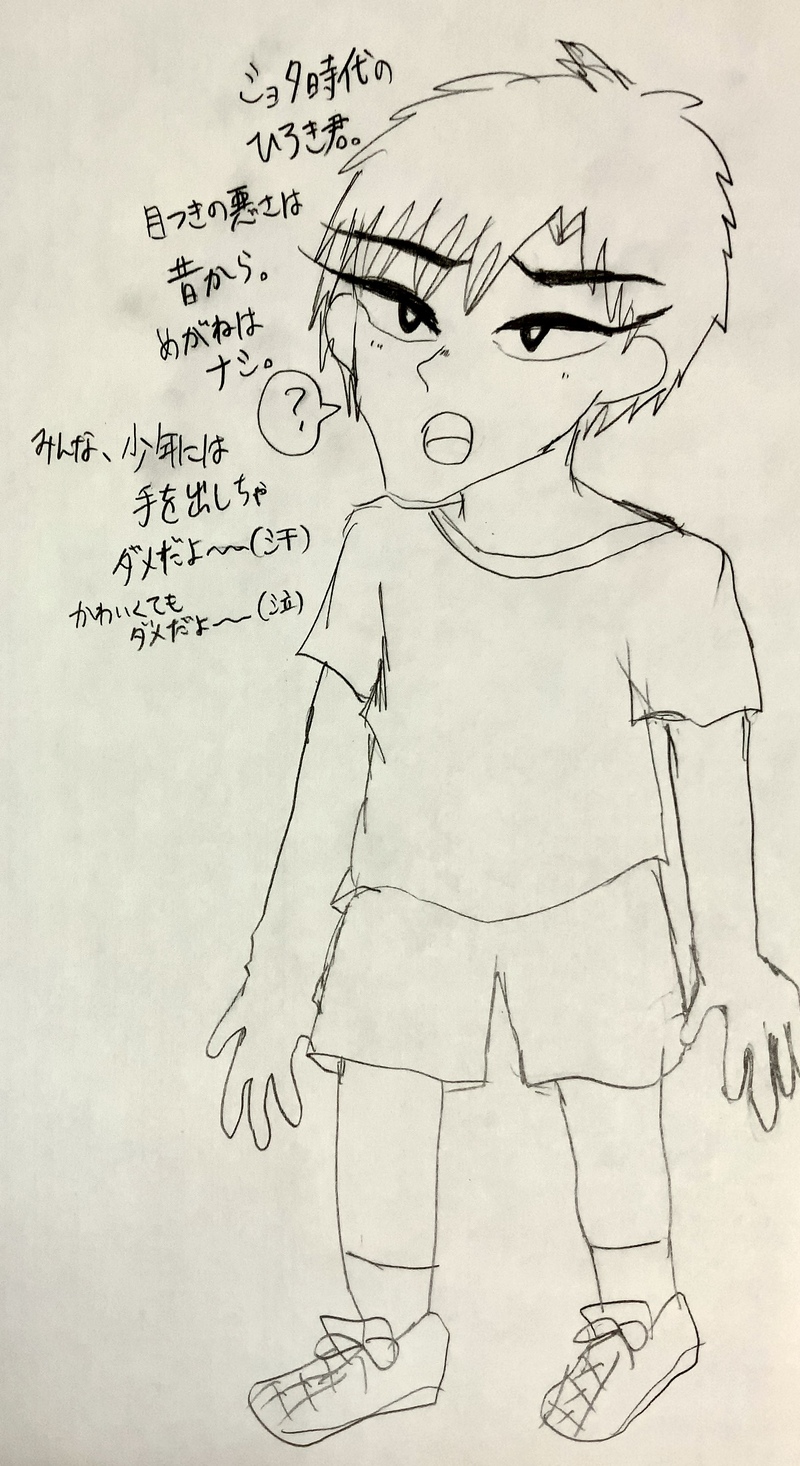 ショタ時代の
ひろき君。
目つきの悪さは
昔から。
めがねは
ナシ。
?
みんな、少年には
手を出しちゃ
ダメだよ〜〜(汗)
かわいくても
ダメだよ〜〜(泣)